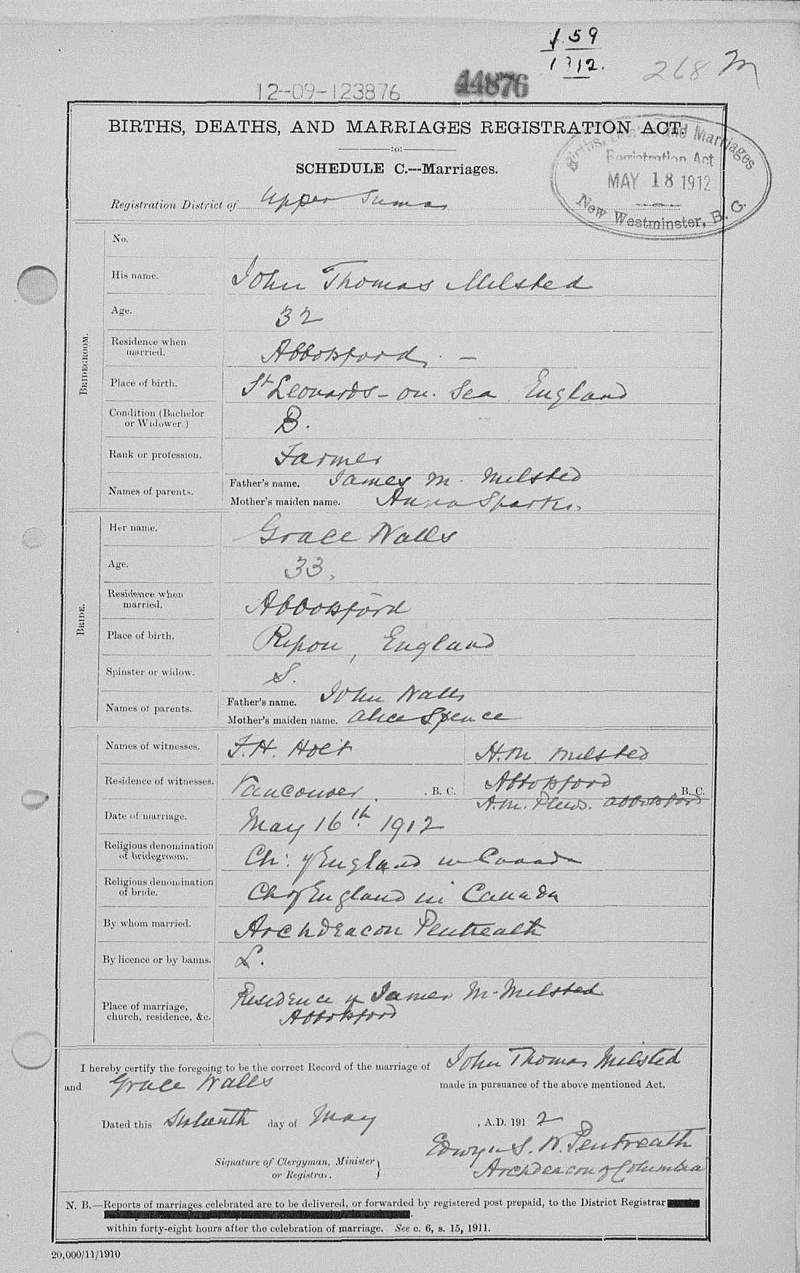 1.59
1912.
268 M
12-09-123876
44876
BIRTHS, DEATHS, AND MARRIAGES REGISTRATION ACT.
:o:
SCHEDULE C.---Marriages.
Births, Deaths and Marriages
Registration Act
MAY 18 1912
New Westminster, B. C.
Registration District of Upper Sumas
BRIDEGROOM.
No.
His name. John Thomas Milsted
Age. 32
Residence when married. Abbotsford. —
Place of birth. St Leonards-on-Sea England
Condition (Bachelor or Widower.) B.
Rank or profession. Farmer
Names of parents. Father's name. James M. Milsted
Mother's maiden name. Anna Sparks.
BRIDE.
Her name. Grace Walls
Age. 33.
Residence when married. Abbotsford
Place of birth. Ripon, England
Spinster or widow. S.
Names of parents. Father's name. John Walls
Mother's maiden name. Alice Spence
Names of witnesses. F.H. Holt H.M. Milsted
Residence of witnesses. Vancouver, B. C. Abbotsford B. C.
A.M. Abbotsford
Date of marriage. May 16th 1912
Religious denomination of bridegroom. Ch: of England in Canada
Religious denomination of bride. Ch of England in Canada
By whom married. Archdeacon Pentreath
By licence or by banns. L.
Place of marriage, church, residence, &c. Residence of James M. Milsted
Abbotsford
I hereby certify the foregoing to be the correct Record of the marriage of John Thomas Milsted
and Grace Walls made in pursuance of the above mentioned Act.
Dated this sixteenth day of May, A.D. 1912
Edwyn S. W. Pentreath
Archdeacon of Columbia
Signature of Clergyman, Minister
or Registrar.
N. B.—Reports of marriages celebrated are to be delivered, or forwarded by registered post prepaid, to the District Registrar
within forty-eight hours after the celebration of marriage. See c. 6, s. 15, 1911.
20,000/11/1910